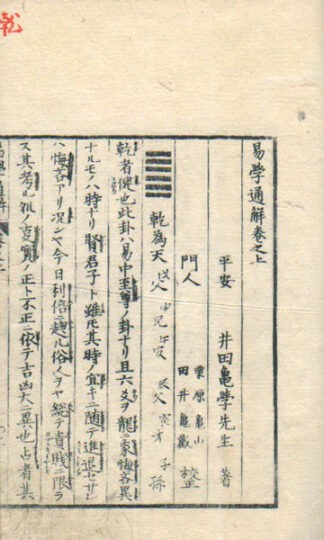 乾
易学通解巻之上
平安 井田亀學先生 著
門人 栗原亀山
田井亀 校
乾為天 父 兄 父 才 子孫
乾者健也此卦ハ易中至尊ノ卦ナリ且六爻ヲ龍ニ象悔吝異
ナルモノハ時ナリ賢君子ト雖氏其時ノ宜キニ随テ進退セサレ
ハ悔吝アリ況ンヤ今日利倍ニ趨ル俗人ヲヤ総テ貴賎ニ限ラ
ス其考ル処ノ事実ノ正ト不正ニ依テ吉凶大ニ異也占者其